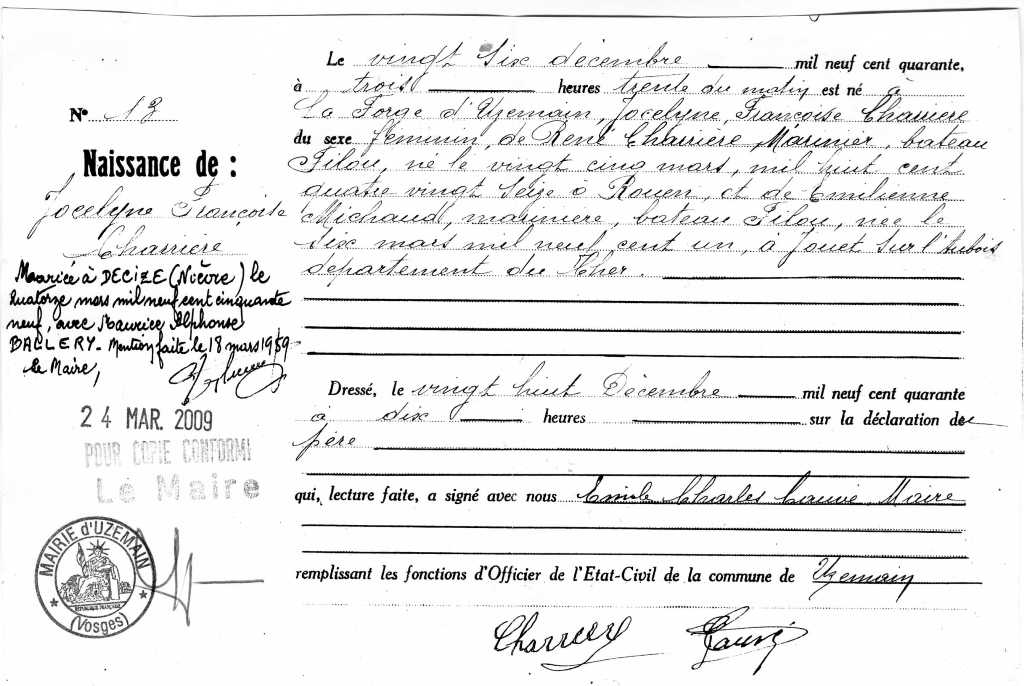 N° 13
Naissance de :
Jocelyne Françoise
Charrière
Mariée à DECIZE (Nièvre) le
Quatorze mars mil neuf cent cinquante
neuf, avec Maurice Alphonse
BALLERY. Mention faite le 18 mars 1959
Le Maire,
24 MAR. 2009
POUR COPIE CONFORME
Le Maire
MAIRIE d'UZEMAIN
RÉPUBLIQUE FRANÇAISE
(Vosges)
Le vingt six décembre mil neuf cent quarante,
à trois heures trente du matin est né à
La Forge d'Uzemain, Jocelyne, Françoise Charrière
du sexe féminin, de René Charrière, Marinier, bateau
Filou, né le vingt cinq mars, mil huit cent
quatre vingt seize à Rouen, et de Emilienne
Michaud, marinière, bateau Filou, née le
six mars mil neuf cent un, à Jouet sur l'Aubois
département du Cher.
Dressé, le vingt huit Décembre mil neuf cent quarante
à dix heures sur la déclaration de
père
qui, lecture faite, a signé avec nous Emile Charles Maire
remplissant les fonctions d'Officier de l'Etat-Civil de la commune de Uzemain
Charriere